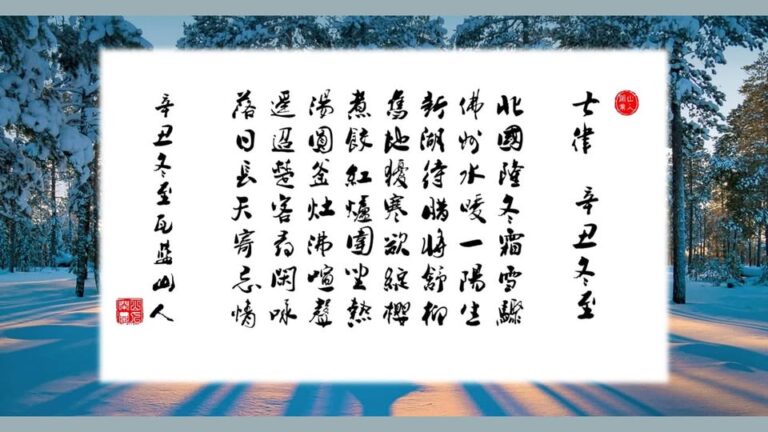 七律 辛丑冬至
北國隆冬霜雪驟
佛州水暖一陽生
新湖待腊將舒柳
舊地猶寒欲綻櫻
煮餃紅爐圍坐熱
湯圓釜灶沸喧聲
迢楚客尋閑咏
落日長天寄忘情
辛丑冬至瓦蓝山人